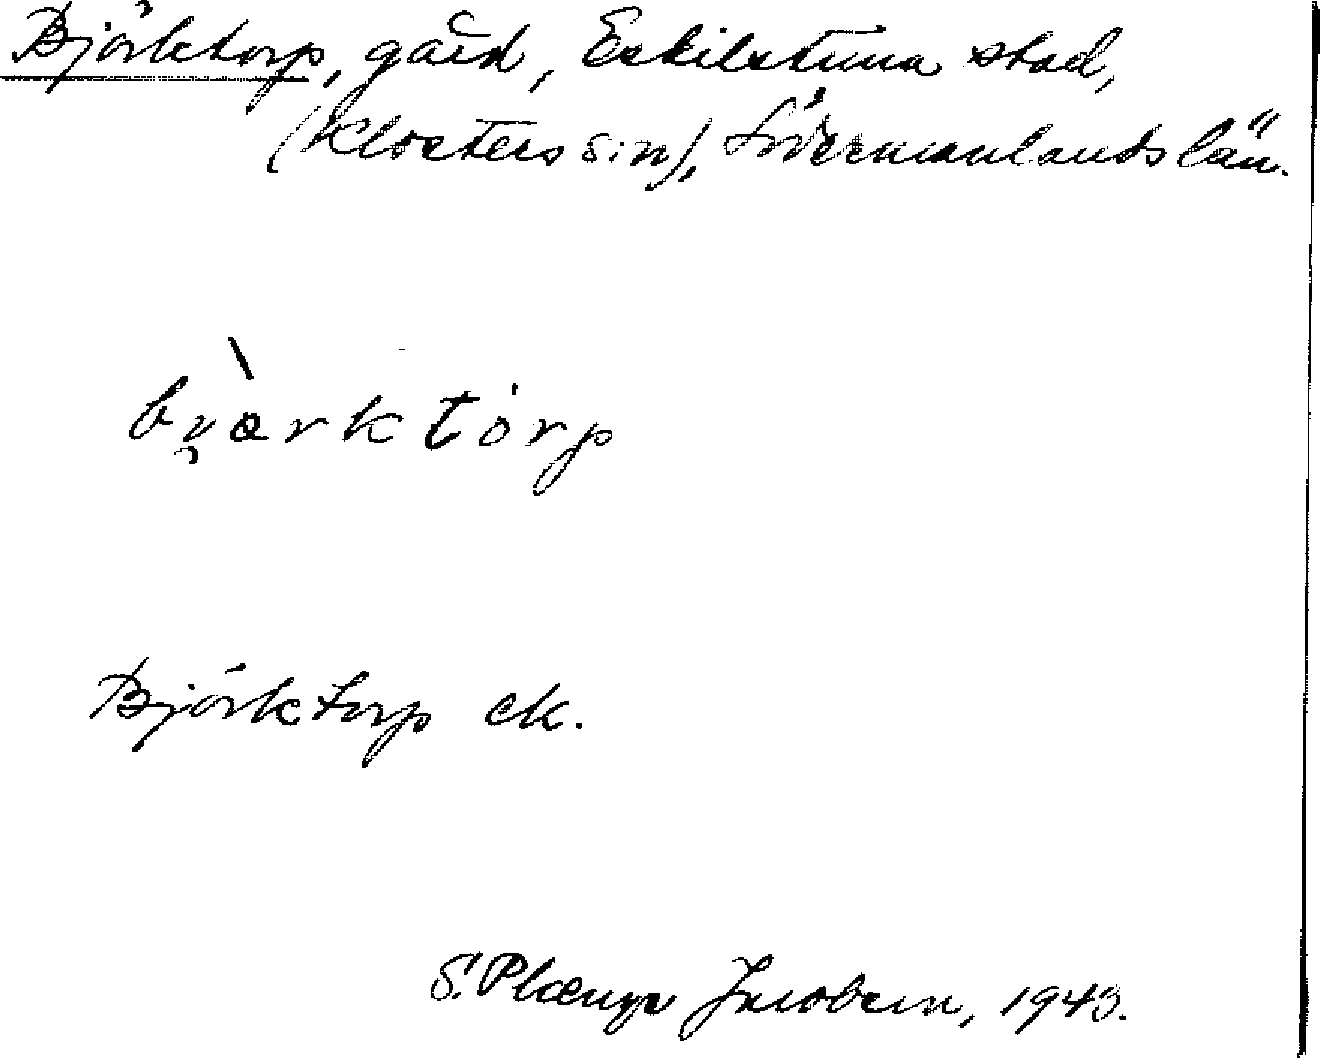 Björktorp, gård, Eskilstuna stad,
(Klosters sn), Södermanlands län.
Björktorp ek.
S. Plænge Jacobsen, 1943.